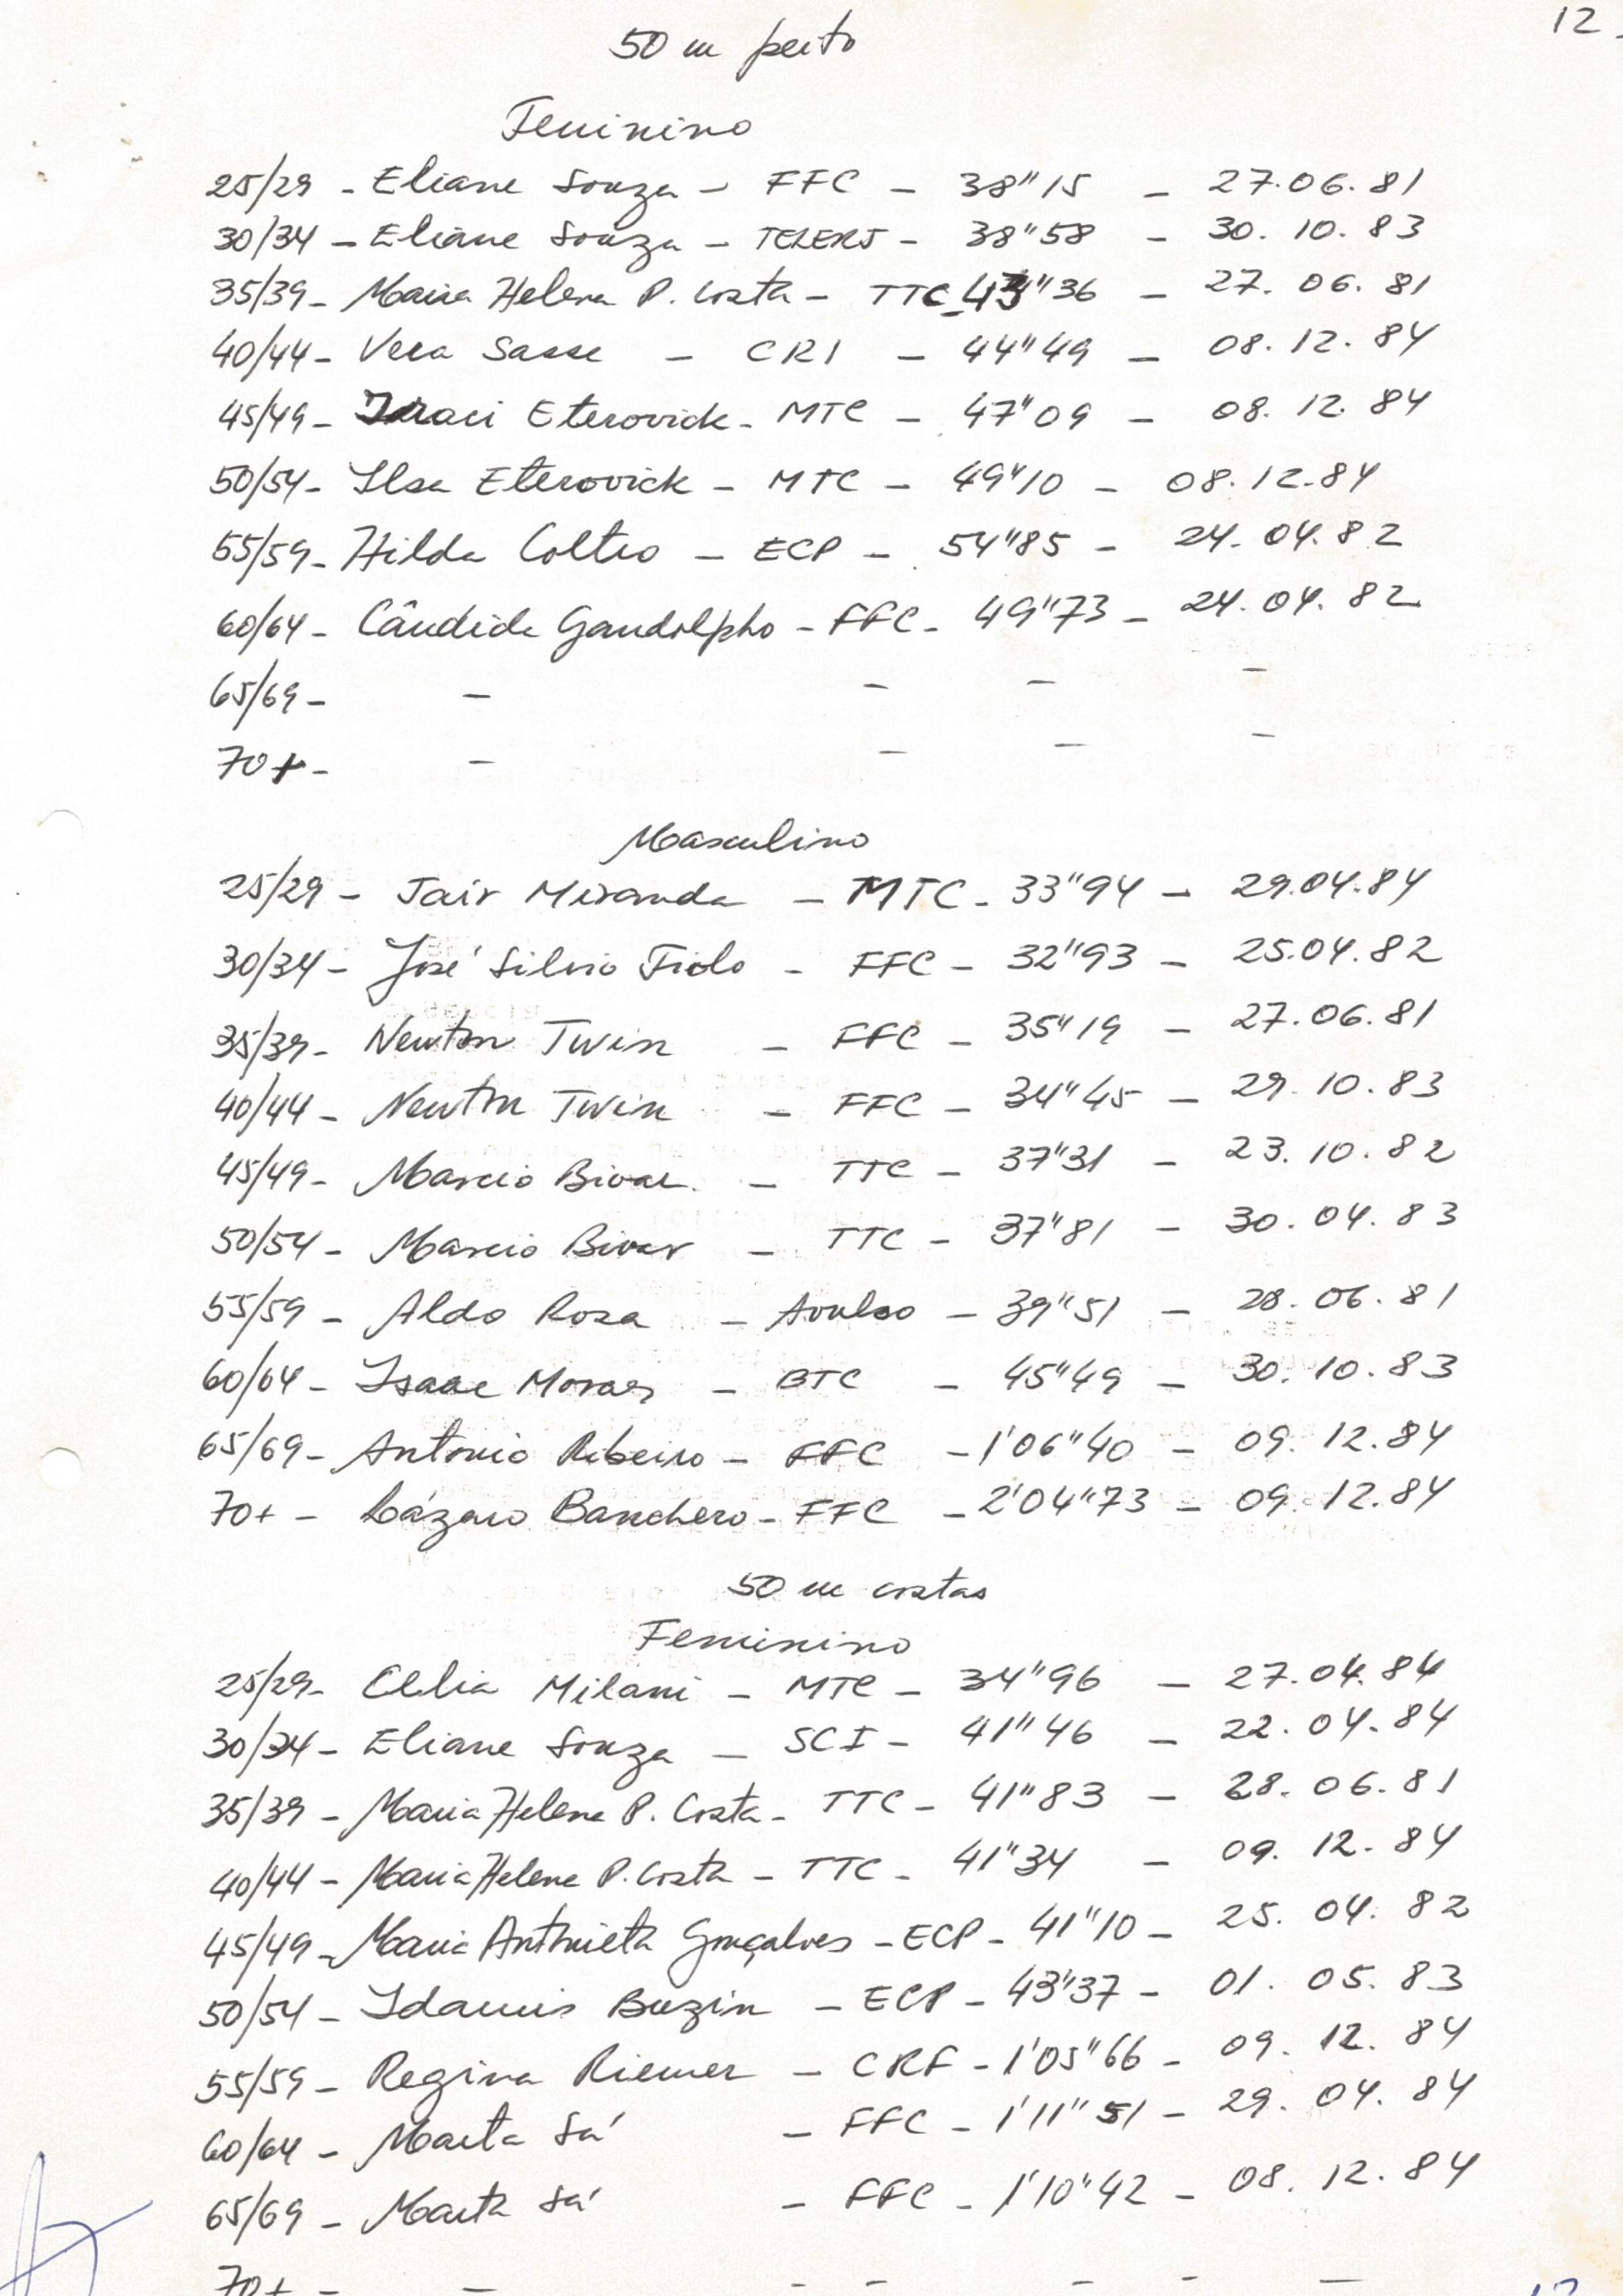 12.
50 m peito
Feminino
25/29 - Eliane Souza - FFC - 38"15 - 27.06.81
30/34 - Eliane Souza - TELERJ - 38"58 - 30.10.83
35/39 - Maria Helena P. Costa - TTC - 43"36 - 27.06.81
40/44 - Vera Sasse - CRI - 44"49 - 08.12.84
45/49 - Eterovick - MTC - 47"09 - 08.12.84
50/54 - Ilsa Eterovick - MTC - 49"10 - 08.12.84
55/59 - Hilda Coltro - ECP - 54"85 - 24.04.82
60/64 - Cândida Gandolpho - FFC - 49"73 - 24.04.82
65/69 - - - - -
70+ - - - - -
Masculino
25/29 - Jair Miranda - MTC - 33"94 - 29.04.84
30/34 - José Silvio Fiolo - FFC - 32"93 - 25.04.82
35/39 - Newton Twin - FFC - 35"19 - 27.06.81
40/44 - Newton Twin - FFC - 34"45 - 29.10.83
45/49 - Marcio Bivar - TTC - 37"31 - 23.10.82
50/54 - Marcio Bivar - TTC - 37"81 - 30.04.83
55/59 - Aldo Rosa - Avulso - 39"51 - 28.06.81
60/64 - Isaac Moraes - BTC - 45"49 - 30.10.83
65/69 - Antonio Ribeiro - FFC - 1'06"40 - 09.12.84
70+ - Lázaro Banchero - FFC - 2'04"73 - 09.12.84
50 m costas
Feminino
25/29 - Célia Milani - MTC - 34"96 - 27.04.84
30/34 - Eliane Souza - SCI - 41"46 - 22.04.84
35/39 - Maria Helena P. Costa - TTC - 41"83 - 28.06.81
40/44 - Maria Helena P. Costa - TTC - 41"34 - 09.12.84
45/49 - Maria Antonieta Gonçalves - ECP - 41"10 - 25.04.82
50/54 - Idamis Buzin - ECP - 43"37 - 01.05.83
55/59 - Regina Riemer - CRF - 1'05"66 - 09.12.84
60/64 - Marta Sá - FFC - 1'11"51 - 29.04.84
65/69 - Marta Sá - FFC - 1'10"42 - 08.12.84
70+ - - - - - - -